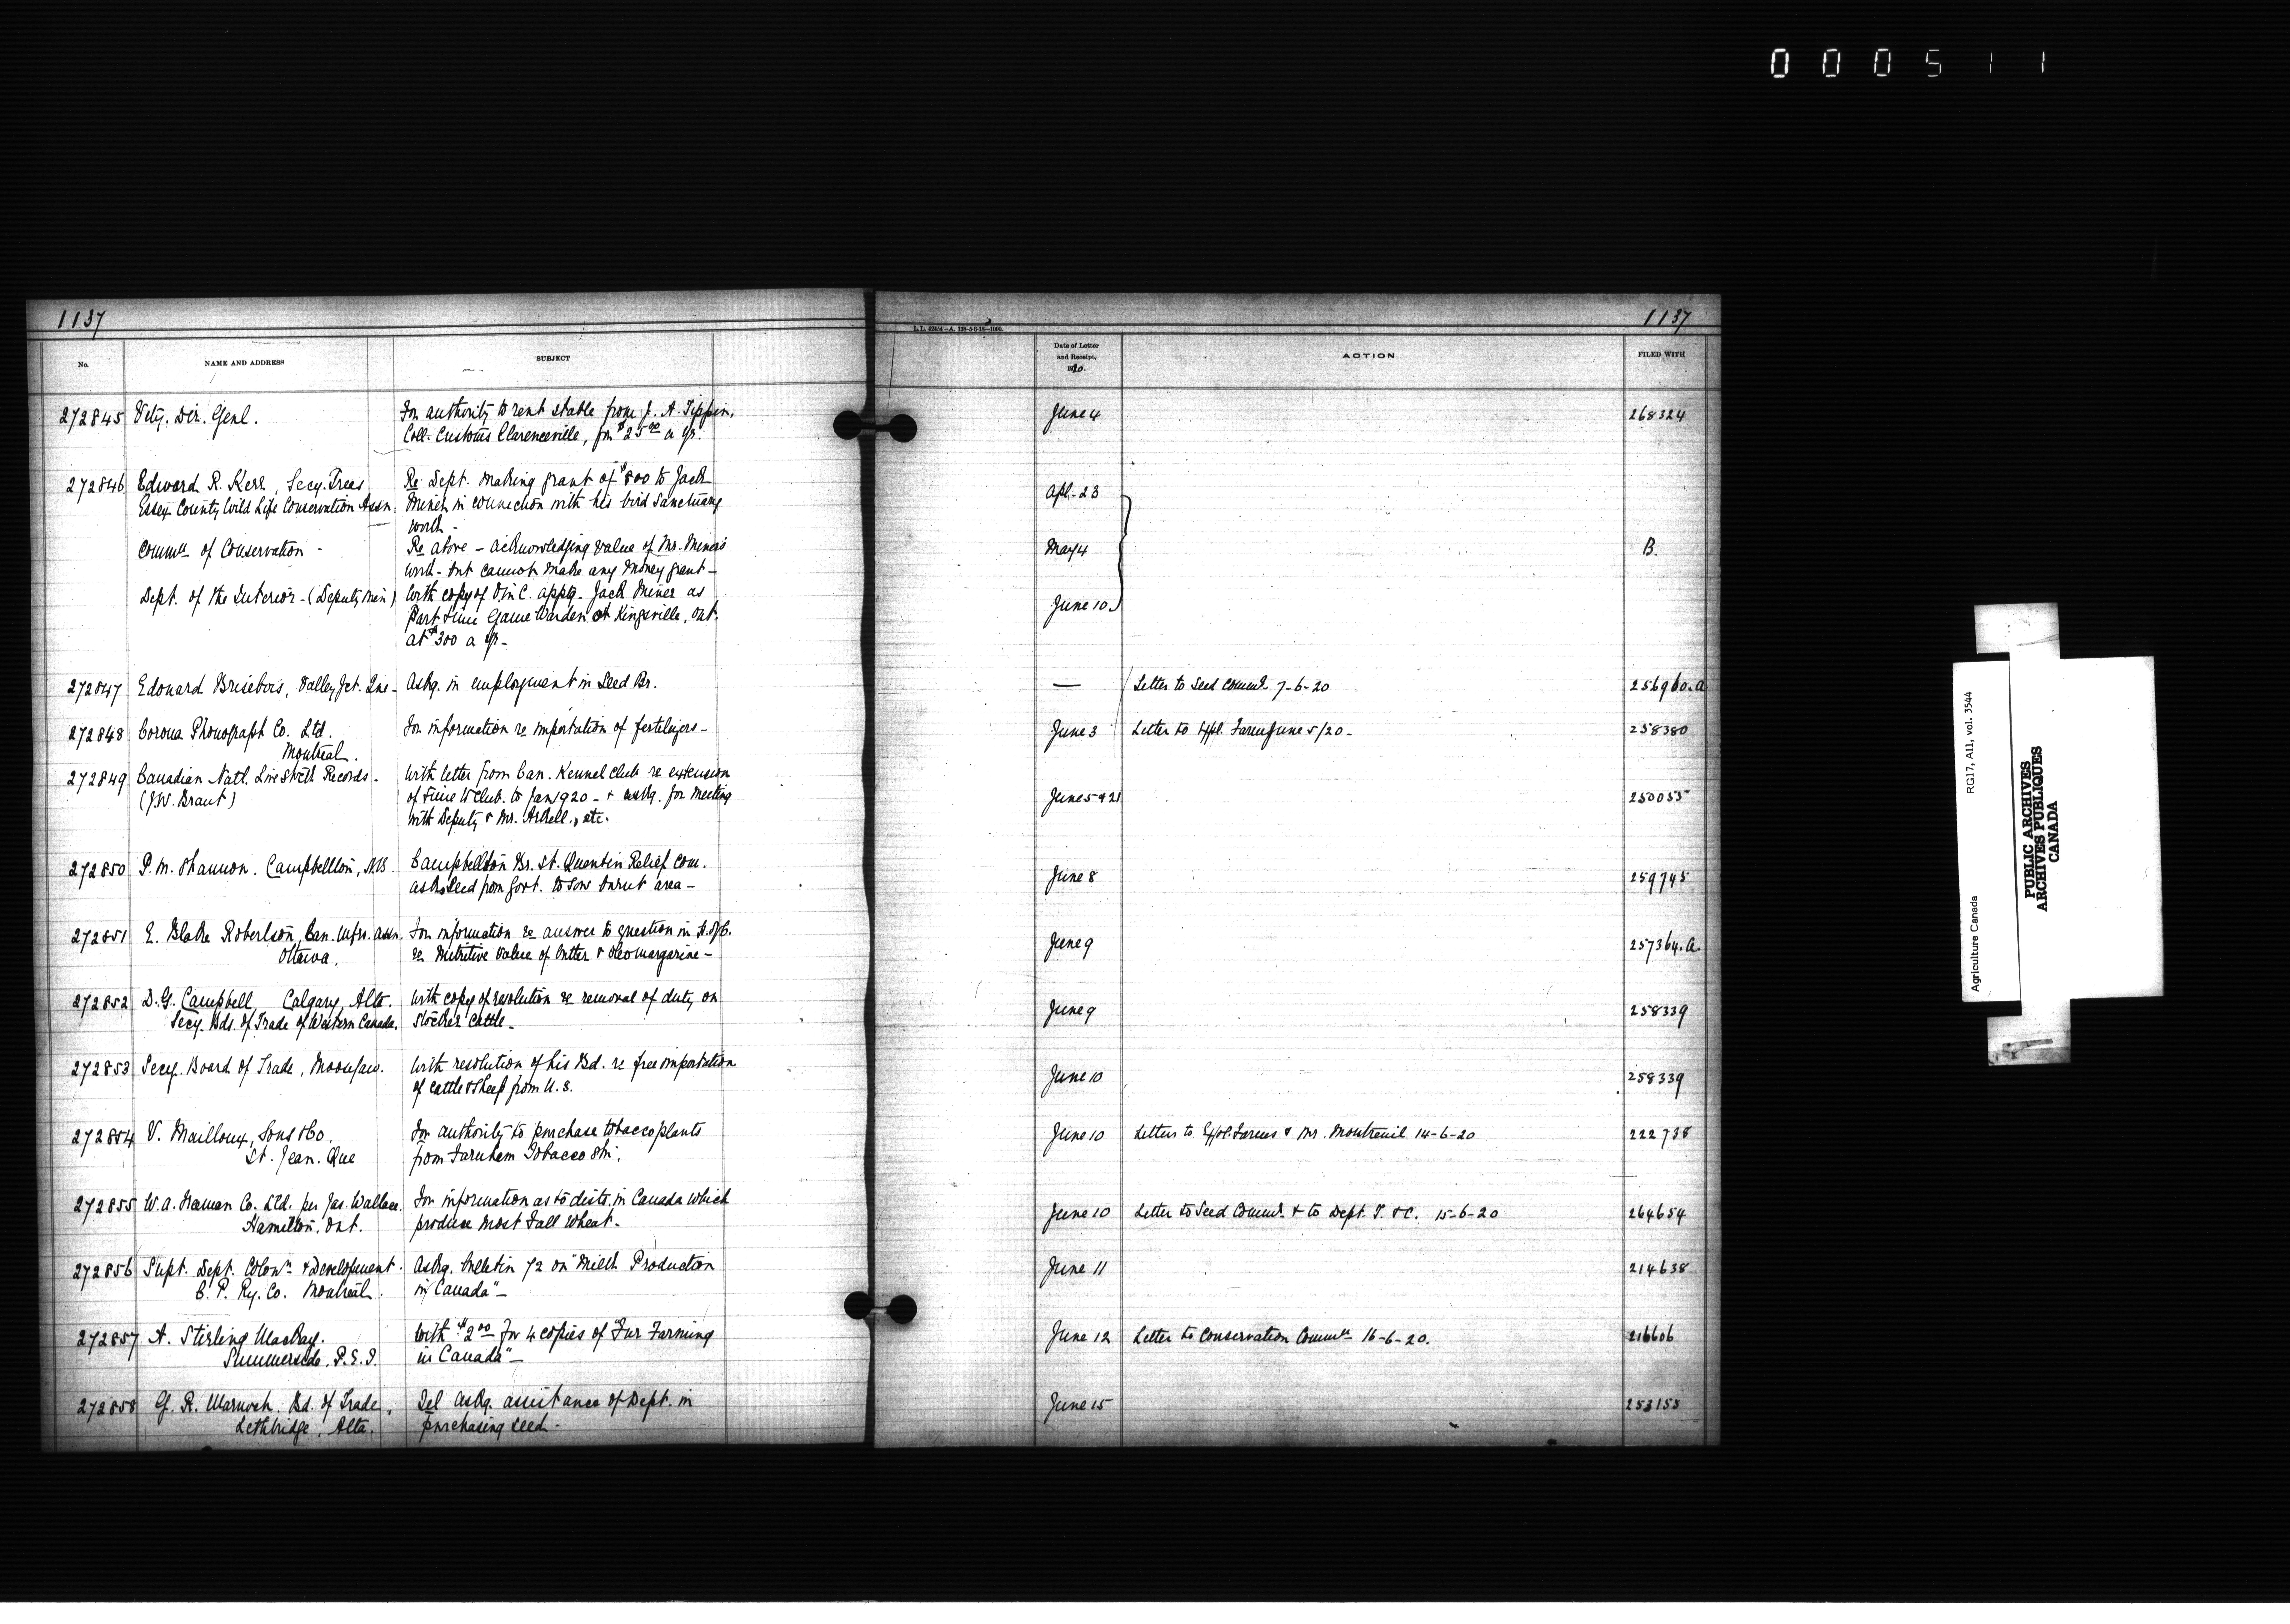 000511
1137
1137
L. L. 42454—A. 128-5-6-18—1000.
No.
NAME AND ADDRESS
SUBJECT
Date of Letter and Receipt, 1920.
ACTION
FILED WITH
272845 Vety. Dir. Genl. For authority to rent stable from J. A. Tippin, June 4 268324
Coll. Customs Clarenceville, for $25.00 a yr.
272846 Edward R. Kerr, Secy. Treas Re Dept. making grant of $800 to Jack Apl. 23
Essex County Wild Life Conservation Assn. Miner in connection with his bird sanctuary
work -
Commn of Conservation - Re above - acknowledging value of Mr. Miner's May 4 B.
work - but cannot make any money grant -
Dept. of the Interior - (Deputy Min) With copy of O in C. apptg. Jack Miner as June 10
Part time Game Warden at Kingsville, Ont.
at $300 a yr -
272847 Edouard Brisebois, Valley Jct. Que - Askg. in employment in Seed Br. — Letter to Seed Commr. 7-6-20 256960.a
272848 Corona Phonograph Co. Ltd. For information re importation of fertilizers - June 3 Letter to Expl. Farm June 5/20 - 258380
Montreal.
272849 Canadian Natl. Live Stock Records - With letter from Can. Kennel Club re extension June 5 & 21 250055
(J.W. Brant) of time to Club. to Jan 1920 - & askg. for meeting
with Deputy & Mr. Arkell, etc.
272850 P. M. Shannon. Campbellton, N.B. Campbellton Br. St. Quentin Relief Com. June 8 259745
asks seed from Govt. to sow burnt area -
272851 E. Blake Robertson, Can. Mfrs. Assn. For information re answer to question in H. of C. June 9 257364.a.
Ottawa. re Nutritive value of butter & Oleomargarine -
272852 D. G. Campbell, Calgary, Alta. With copy of resolution re removal of duty on June 9 258339
Secy. Bds. of Trade of Western Canada. Stocker Cattle -
272853 Secy. Board of Trade, Moosejaw. With resolution of his Bd. re free importation June 10 258339
of cattle & sheep from U.S.
272854 V. Mailloux, Sons & Co. For authority to purchase tobacco plants June 10 Letters to Expl. Farms & Mr. Montreuil 14-6-20 222738
St. Jean. Que from Farnham Tobacco Stn.
272855 W. A. Freeman Co. Ltd. per Jas. Wallace. For information as to dists. in Canada which June 10 Letter to Seed Commr. & to Dept. T. & C. 15-6-20 264654
Hamilton, Ont. produce most Fall Wheat -
272856 Supt. Dept. Colonn. & Development. Askg. bulletin 72 on "Milch Production June 11 214638
C. P. Ry. Co. Montreal. in Canada" -
272857 A. Stirling MacKay. With $2.00 for 4 copies of "Fur Farming June 12 Letter to Conservation Commn 16-6-20. 216606
Summerside, P.E.I. in Canada" -
272858 G. R. Marnoch, Bd. of Trade, Tel askg. assistance of Dept. in June 15 253155
Lethbridge, Alta. purchasing seed -
Agriculture Canada
RG17, AII, vol. 3544
PUBLIC ARCHIVES
ARCHIVES PUBLIQUES
CANADA